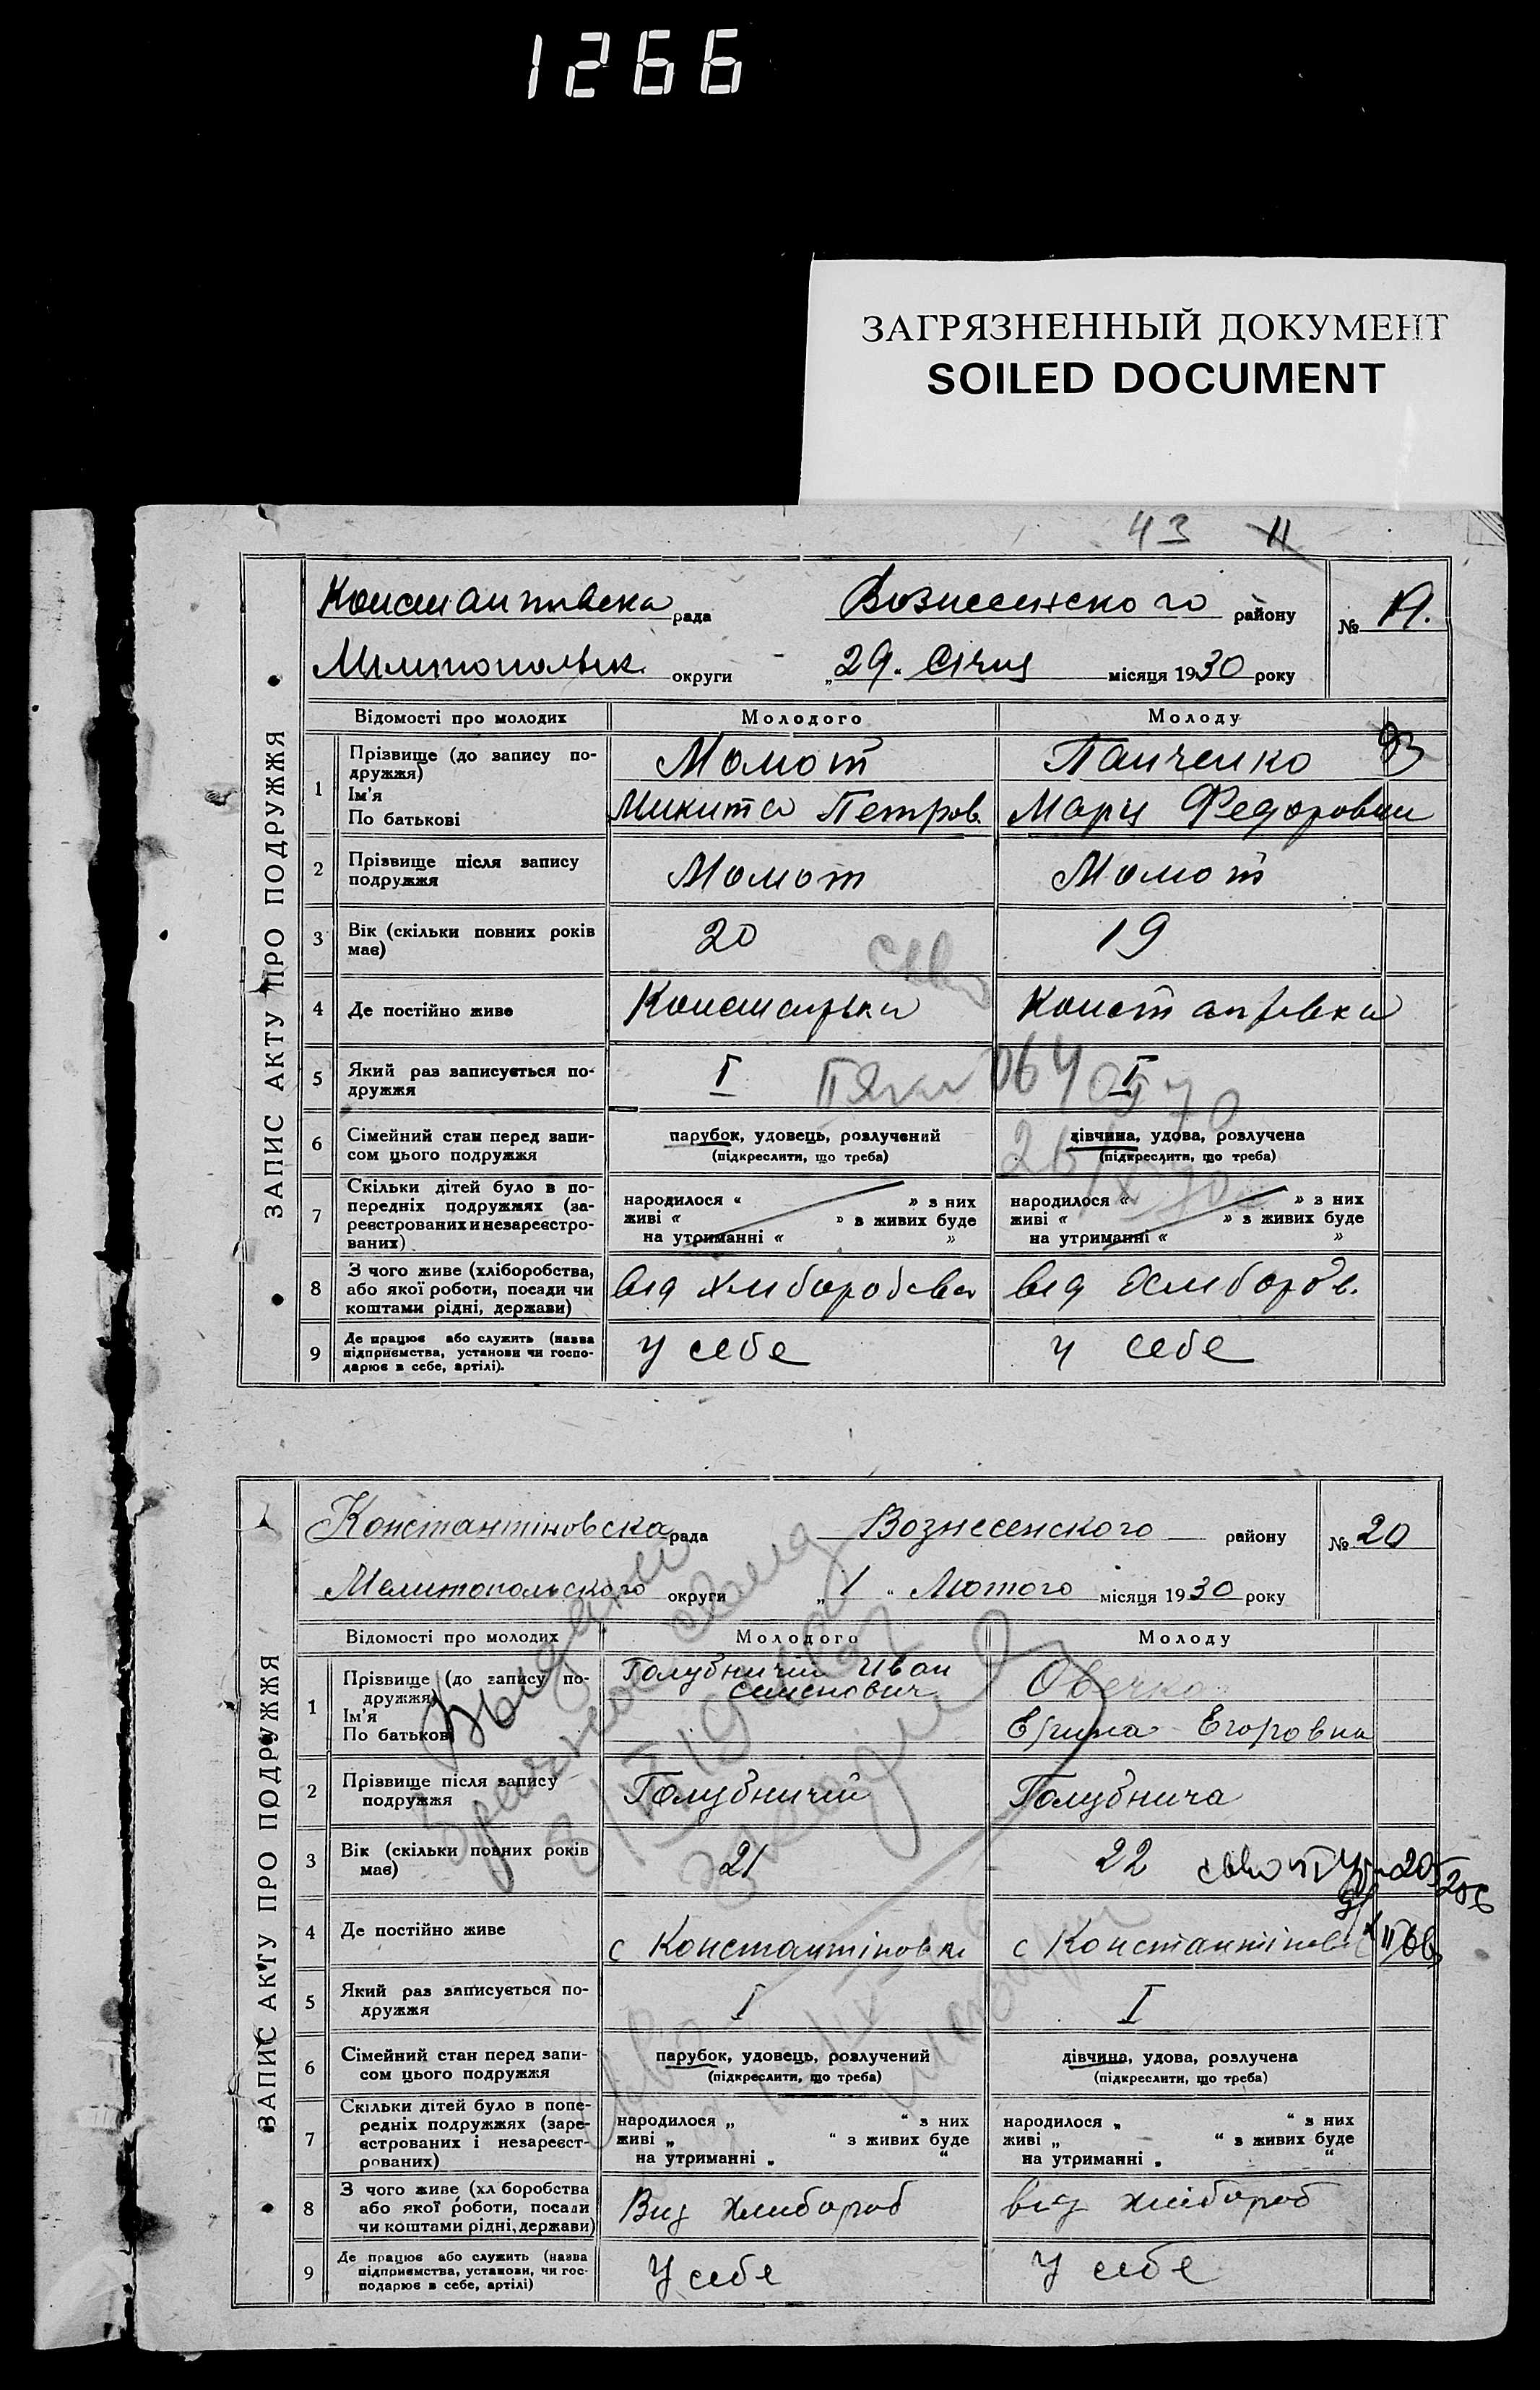 1266
ЗАГРЯЗНЕННЫЙ ДОКУМЕНТ
SOILED DOCUMENT
43 11
ЗАПИС АКТУ ПРО ПОДРУЖЖЯ
рада Вознесенского району №
округи „29“ Січня місяця 1930 року
Відомості про молодих Молодого Молоду
1 Прізвище (до запису подружжя) Момот Панченко
Ім'я
По батькові Микита Петров. Федоровни
2 Прізвище після запису подружжя Момот Момот
3 Вік (скільки повних років має) 20 19
4 Де постійно живе
5 Який раз записується подружжя I I
6 Сімейний стан перед записом цього подружжя парубок, удовець, розлучений дівчина, удова, розлучена
(підкреслити, що треба) (підкреслити, що треба)
7 Скільки дітей було в попередніх подружжях (зареєстрованих и незареєстрованих)
народилося « » з них народилося « » з них
живі « » в живих буде живі « » в живих буде
на утриманні « » на утриманні « »
8 З чого живе (хліборобства, або якої роботи, посади чи коштами рідні, держави) від від
9 Де працює або служить (назва підприємства, установи чи господарює в себе, артілі). у себе у себе
ЗАПИС АКТУ ПРО ПОДРУЖЖЯ
Константіновска рада Вознесенского району № 20
Мелитопольского округи „1“ Лютого місяця 1930 року
Відомості про молодих Молодого Молоду
1 Прізвище (до запису подружжя) Голубничий Иван Овечко
Семенович
Ім'я
По батькові Егоровна
2 Прізвище після запису подружжя Голубничий Голубнича
3 Вік (скільки повних років має) 21 22
4 Де постійно живе с Константіновка с
5 Який раз записується подружжя I I
6 Сімейний стан перед записом цього подружжя парубок, удовець, розлучений дівчина, удова, розлучена
(підкреслити, що треба) (підкреслити, що треба)
7 Скільки дітей було в попередніх подружжях (зареєстрованих і незареєстрованих)
народилося „ “ з них народилося „ “ з них
живі „ “ з живих буде живі „ “ в живих буде
на утриманні „ “ на утриманні „ “
8 З чого живе (хл боробства або якої роботи, посади чи коштами рідні, держави) Вид хлибороб від хлібороб
9 Де працює або служить (назва підприємства, установи, чи господарює в себе, артілі) У себе У себе